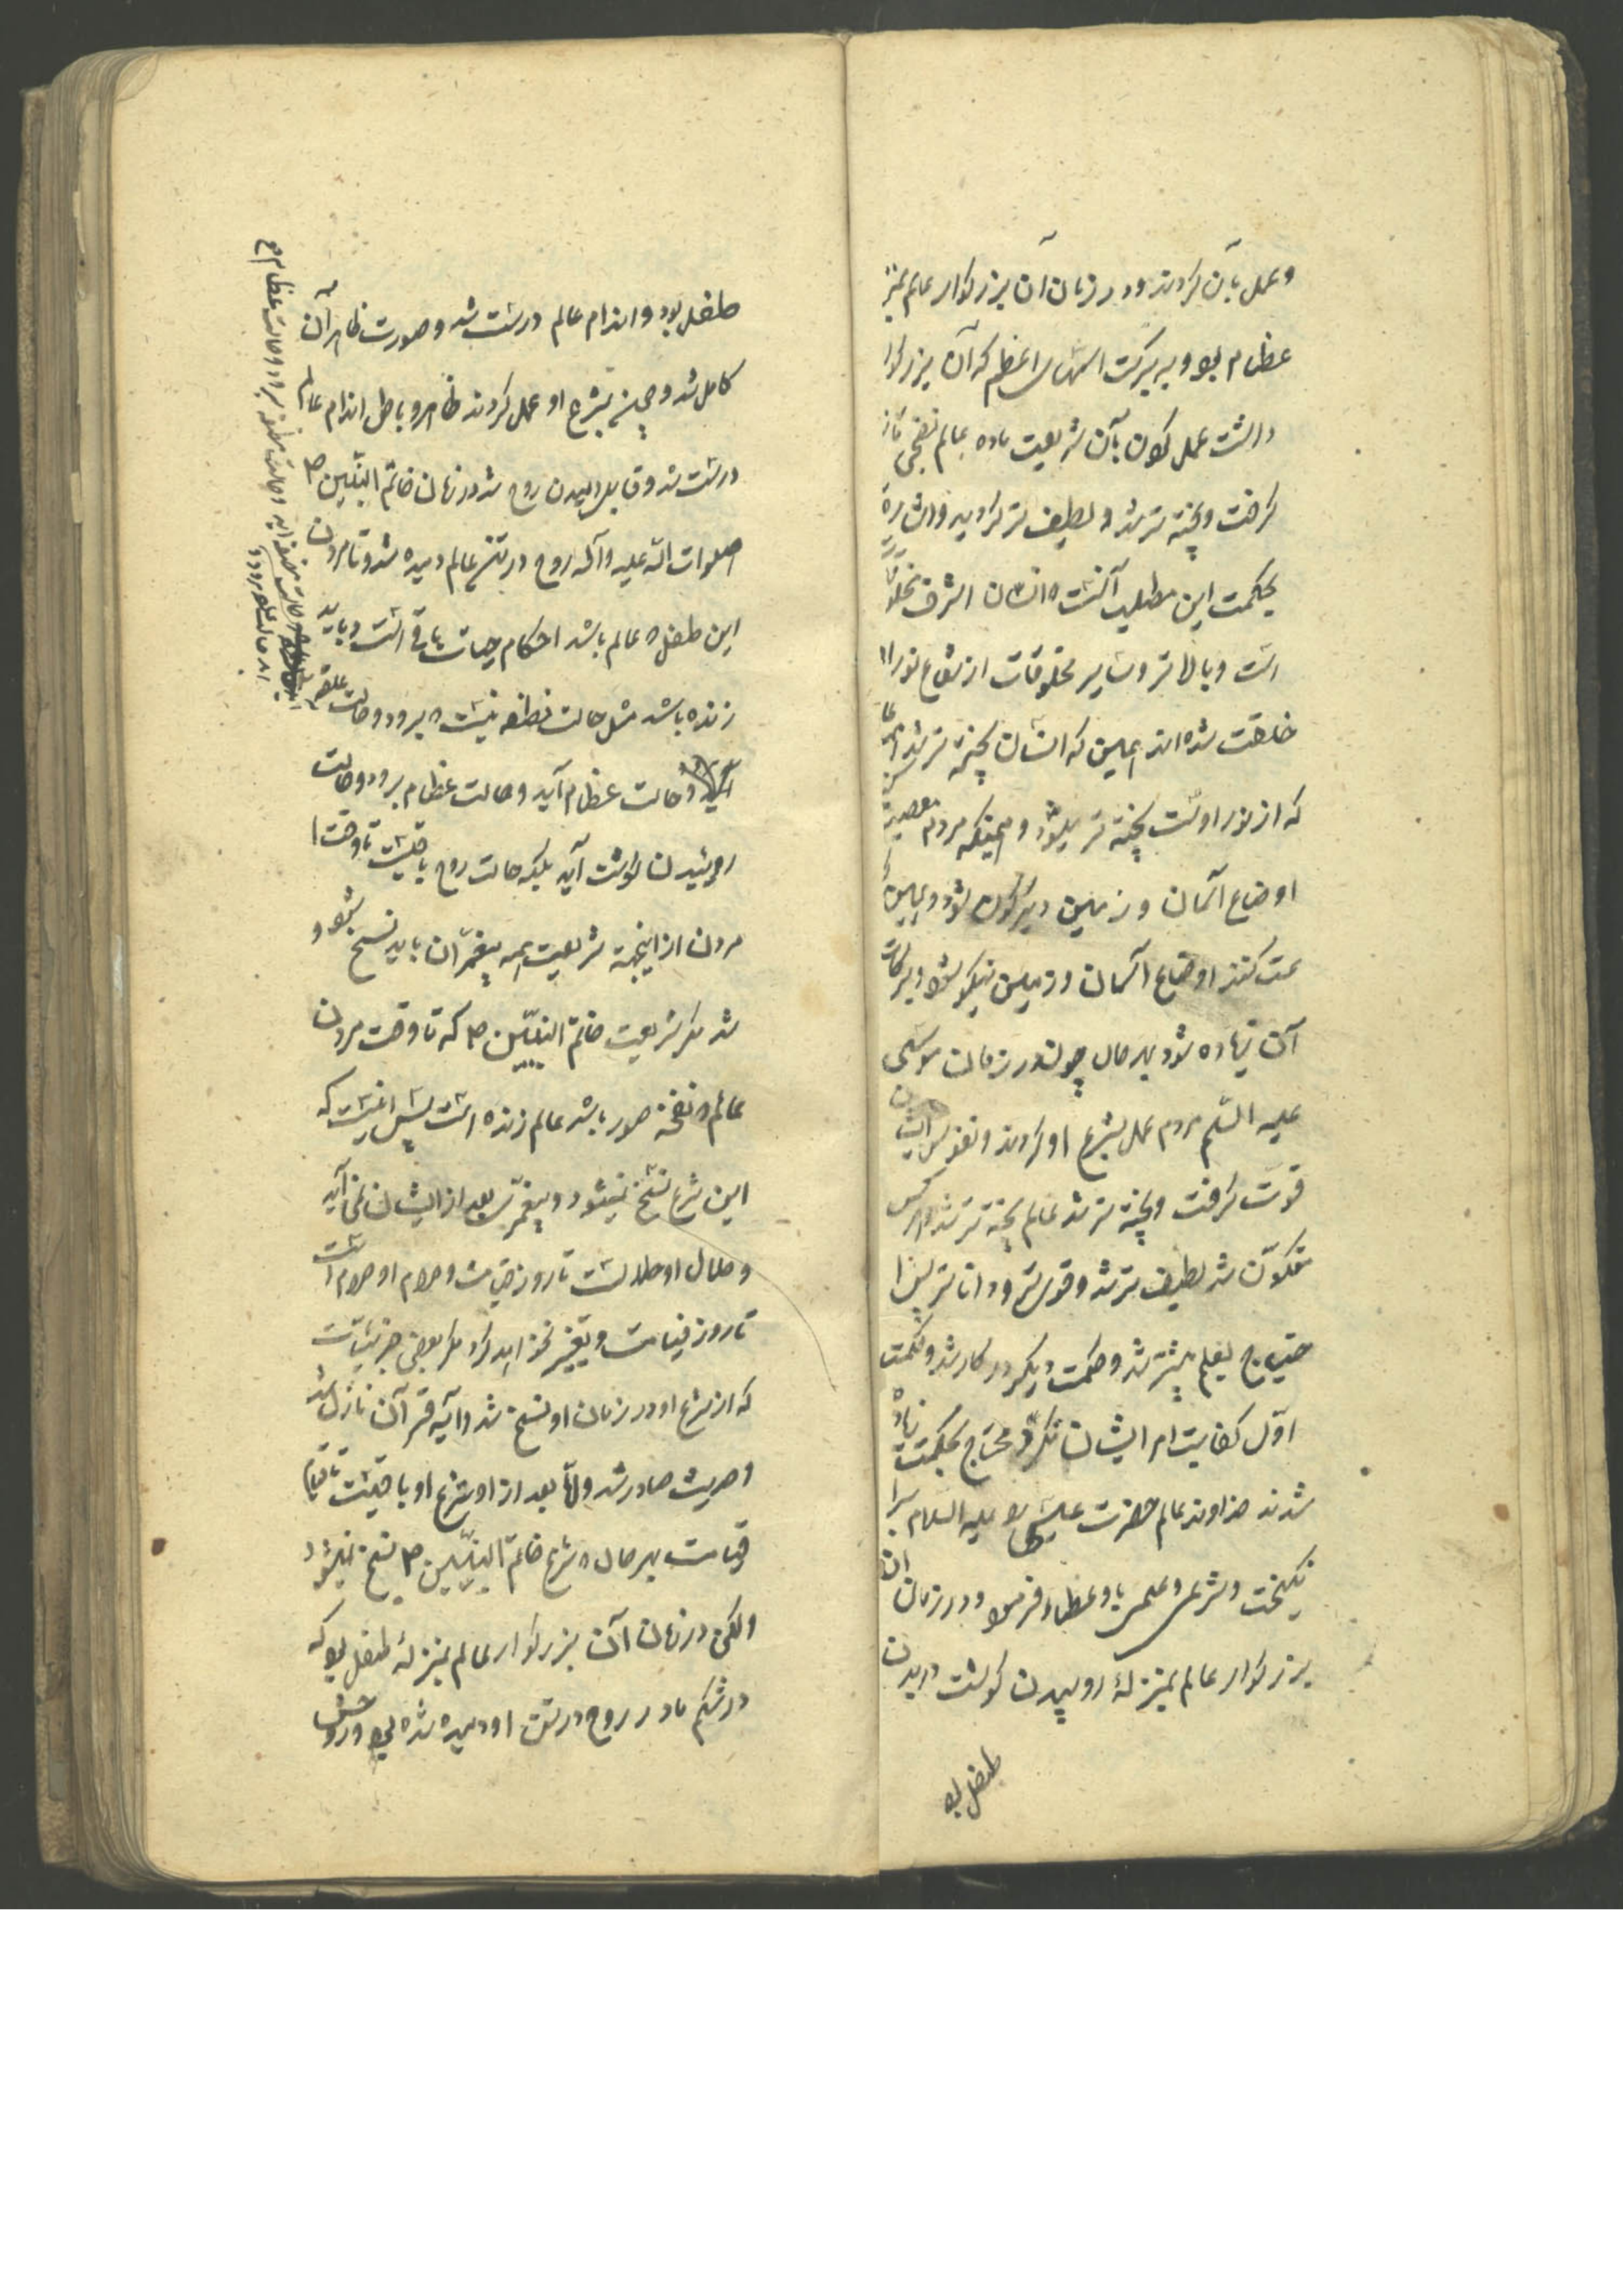 و عمل بآن کردند و در زمان آن بزرگوار عالم بمنز
عظام بود و به برکت اسمهای اعظم که آن بزرگوا
داشت عمل کردن بآن شریعت ماده عالم نضجی تازه
گرفت و پخته تر شد و لطیف تر گردید و اشاره
بحکمت این مطلب آنست که انسان اشرف مخلوقات
است و بالا تر و سایر مخلوقات از شعاع نور او
خلقت شده اند همین که انسان پخته تر شد عالم
که از نور اوست پخته تر میشود و همینکه مردم معصیت
اوضاع آسمان و زمین دیگرگون شود و همین که
عت کنند اوضاع آسمان و زمین نیکو شود و برکات
آن زیاده شود بهر حال چون در زمان موسی
علیه السّلم مردم عمل بشرع او کردند و نفوس ایشان
قوّت گرفت و پخته تر شد عالم پخته تر شد و هر کس
متکوّن شد لطیف تر شد و قوی تر و دانا تر پس ا
حتیاج بعلم بیشتر شد و حکمت دیگر در کار شد و حکمت
اوّل کفایت امر ایشان نکرد و محتاج بحکمت زیاده
شدند خداوند عالم حضرت عیسی را علیه السلام بر ا
نگیخت و شرعی و علمی باو عطا فرمود و در زمان آن
بزرگوار عالم بمنزلهٔ روییدن گوشت در بدن
طفل بود
طفل بود و اندام عالم درست شد و صورت ظاهر آن
کامل شد و چون بشرع او عمل کردند ظاهر و باطن اندام عالم
درست شد و قابل دمیدن روح شد در زمان خاتم النبیّین ص
صلوات الله علیه و آله روح در تن عالم دمیده شد و تا مردن
این طفل که عالم باشد احکام حیات باقی است و باید
زنده باشد مثل حالت نطفه نیست که برود و حالت علقه
آید و حالت عظام آید و حالت عظام برود و حالت
روییدن گوشت آید بلکه حالت روح باقیست تا وقت
مردن از اینجهة شریعت همه پیغمبران باید نسخ شود و
شد مگر شریعت خاتم النبیّین ص که تا وقت مردن
عالم که نفخه صور باشد عالم زنده است پس اینست که
این شرع نسخ نمیشود و پیغمبری بعد از ایشان نمی آید
و حلال او حلالست تا روز قیامت و حرام او حرام است
تا روز قیامت و تغییر نخواهد کرد مگر بعضی جزئیات
که از شرع او در زمان او نسخ شد و آیه قرآن نازل شد
و حدیث صادر شد و امّا بعد از او شرع او باقیست تا قیام
قیامت بهر حال که شرع خاتم النبیّین ص نسخ نمیشود
ولکن در زمان آن بزرگوار عالم بمنزلهٔ طفلی بود که
در شکم مادر روح در تن او دمیده شده بود و روحش